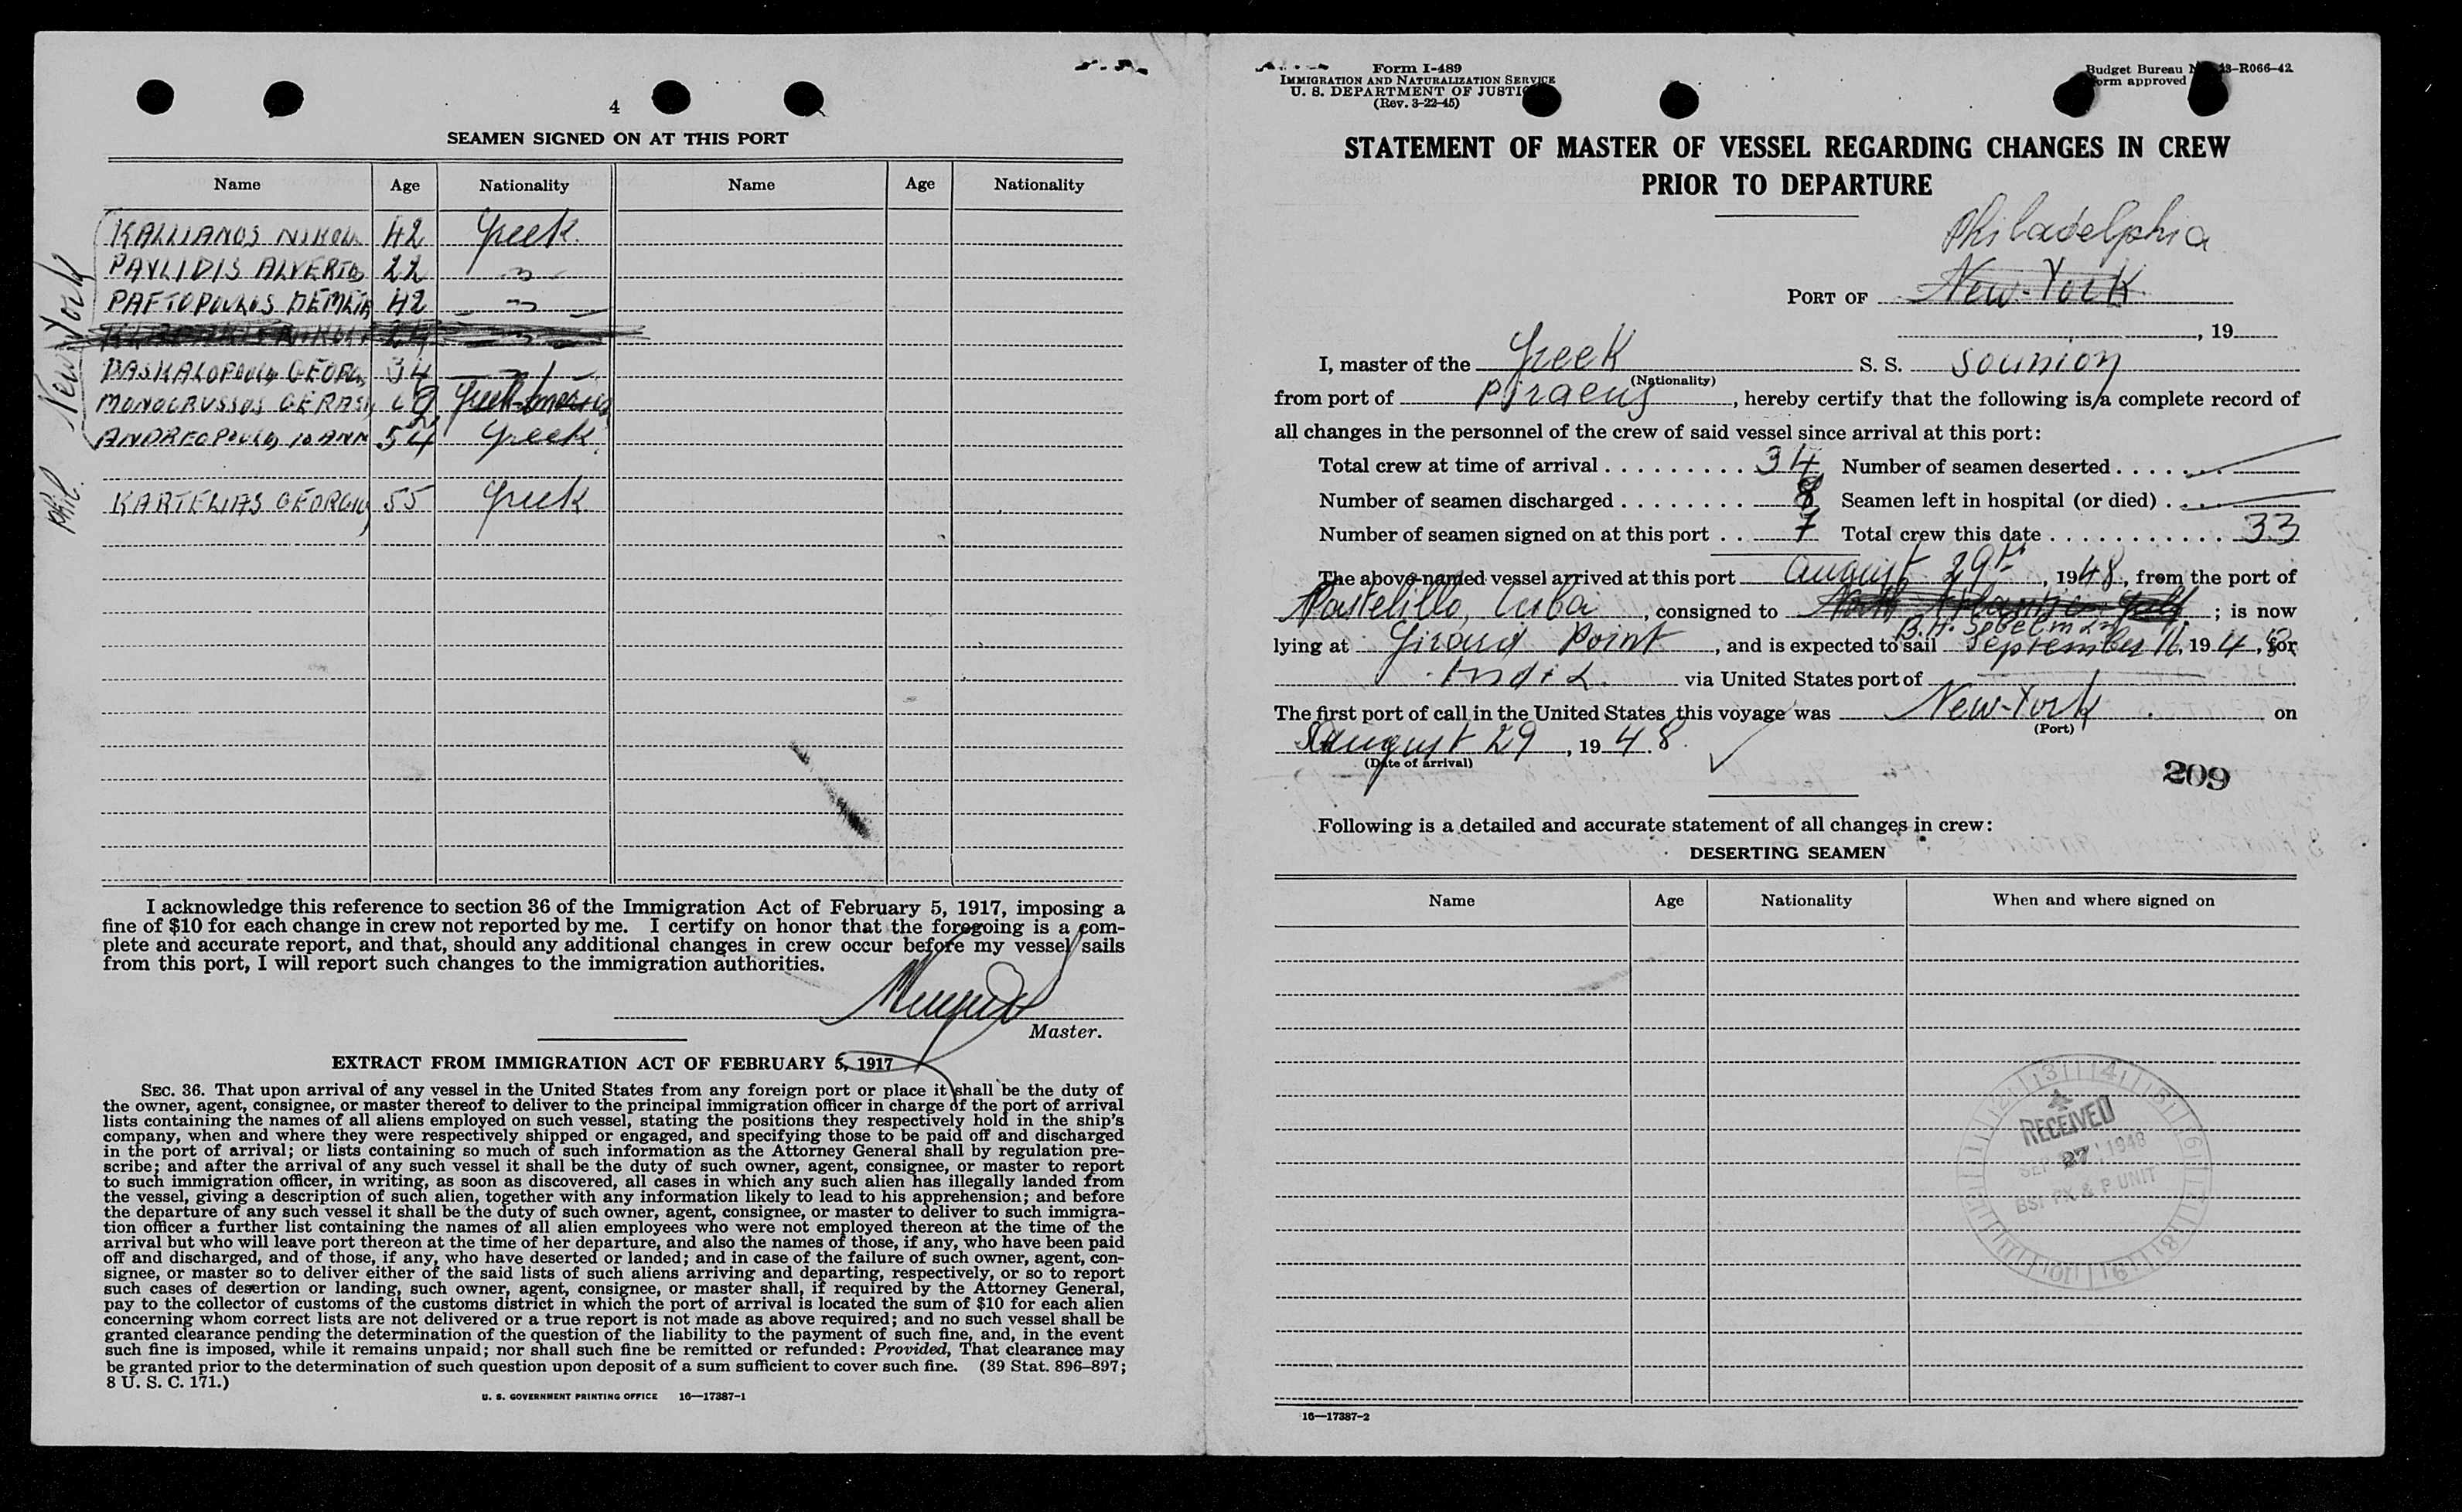 4
SEAMEN SIGNED ON AT THIS PORT
Name Age Nationality Name Age Nationality
New York
KALLIANOS NIKOL 42 Greek
PAVLIDIS ALVERTO 22 "
PAFTOPOULOS DEMETR 42 "
24 "
PASKALOPOULOS GEORG 34 "
MONOCRUSSOS GERASI Greek
ANDREOPOULOS IOANN 54 Greek
Phil.
KARTELIAS GEORGIOS 55 Greek
I acknowledge this reference to section 36 of the Immigration Act of February 5, 1917, imposing a
fine of $10 for each change in crew not reported by me. I certify on honor that the foregoing is a com-
plete and accurate report, and that, should any additional changes in crew occur before my vessel sails
from this port, I will report such changes to the immigration authorities.
Master.
EXTRACT FROM IMMIGRATION ACT OF FEBRUARY 5, 1917
SEC. 36. That upon arrival of any vessel in the United States from any foreign port or place it shall be the duty of
the owner, agent, consignee, or master thereof to deliver to the principal immigration officer in charge of the port of arrival
lists containing the names of all aliens employed on such vessel, stating the positions they respectively hold in the ship's
company, when and where they were respectively shipped or engaged, and specifying those to be paid off and discharged
in the port of arrival; or lists containing so much of such information as the Attorney General shall by regulation pre-
scribe; and after the arrival of any such vessel it shall be the duty of such owner, agent, consignee, or master to report
to such immigration officer, in writing, as soon as discovered, all cases in which any such alien has illegally landed from
the vessel, giving a description of such alien, together with any information likely to lead to his apprehension; and before
the departure of any such vessel it shall be the duty of such owner, agent, consignee, or master to deliver to such immigra-
tion officer a further list containing the names of all alien employees who were not employed thereon at the time of the
arrival but who will leave port thereon at the time of her departure, and also the names of those, if any, who have been paid
off and discharged, and of those, if any, who have deserted or landed; and in case of the failure of such owner, agent, con-
signee, or master so to deliver either of the said lists of such aliens arriving and departing, respectively, or so to report
such cases of desertion or landing, such owner, agent, consignee, or master shall, if required by the Attorney General,
pay to the collector of customs of the customs district in which the port of arrival is located the sum of $10 for each alien
concerning whom correct lists are not delivered or a true report is not made as above required; and no such vessel shall be
granted clearance pending the determination of the question of the liability to the payment of such fine, and, in the event
such fine is imposed, while it remains unpaid; nor shall such fine be remitted or refunded: Provided, That clearance may
be granted prior to the determination of such question upon deposit of a sum sufficient to cover such fine. (39 Stat. 896–897;
8 U. S. C. 171.)
U. S. GOVERNMENT PRINTING OFFICE 16—17387-1
Form I-489
IMMIGRATION AND NATURALIZATION SERVICE
U. S. DEPARTMENT OF JUSTICE
(Rev. 3-22-45)
Budget Bureau 43-R066-42
Form approved
STATEMENT OF MASTER OF VESSEL REGARDING CHANGES IN CREW
PRIOR TO DEPARTURE
Philadelphia
PORT OF New-York
, 19
I, master of the Greek S. S. Sounion
(Nationality)
from port of Piraeus, hereby certify that the following is a complete record of
all changes in the personnel of the crew of said vessel since arrival at this port:
Total crew at time of arrival . . . . . . . . . 34 Number of seamen deserted . . . . . .
Number of seamen discharged . . . . . . . . 8 Seamen left in hospital (or died) . .
Number of seamen signed on at this port . . 7 Total crew this date . . . . . . . . . . . 33
The above-named vessel arrived at this port August 29th, 1948, from the port of
Pastelillo, Cuba, consigned to North Atlantic & Gulf ; is now
B.H. Sobelman
lying at Girard Point, and is expected to sail September 11, 1948, for
India. via United States port of
The first port of call in the United States this voyage was New-York on
(Port)
August 29, 1948.
(Date of arrival)
209
Following is a detailed and accurate statement of all changes in crew:
DESERTING SEAMEN
Name Age Nationality When and where signed on
RECEIVED
SEP 27 1948
BSI FX & P UNIT
16—17387-2